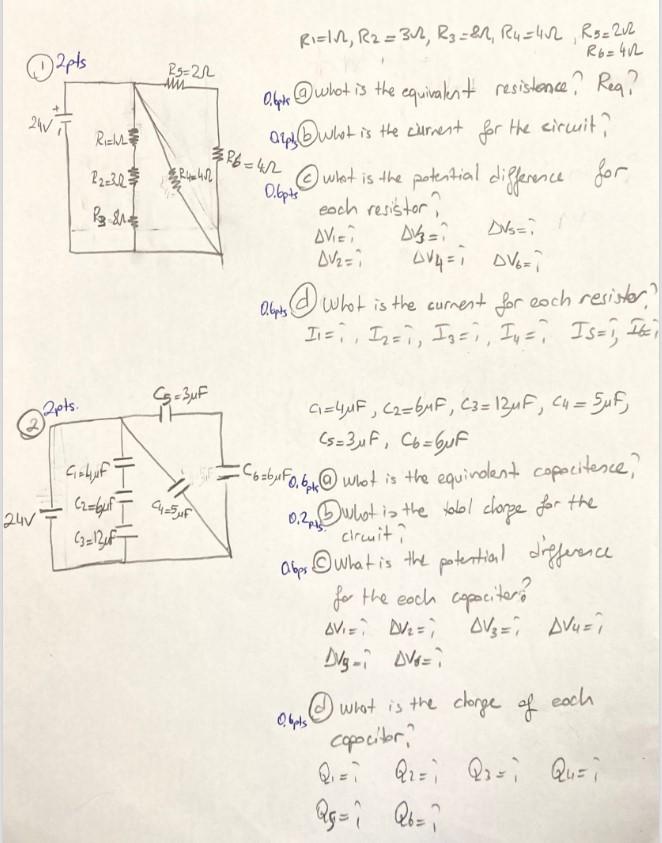 R1=1Ω, R2=3Ω, R3=8Ω, R4=4Ω, R5=2Ω
R6=4Ω
① 2pts
R5=2Ω
24V
R1=1Ω
R2=3Ω
R3=8Ω
R4=4Ω
R6=4Ω
0.6pts ⓐ what is the equivalent resistance? Req?
0.2pts ⓑ what is the current for the circuit?
0.6pts ⓒ what is the potential difference for
each resistor?
ΔV1=? ΔV3=? ΔV5=?
ΔV2=? ΔV4=? ΔV6=?
0.6pts ⓓ what is the current for each resistor?
I1=?, I2=?, I3=?, I4=? I5=?, I6=?
② 2pts.
C5=3μF
24V
C1=4μF
C2=6μF
C3=12μF
C4=5μF
C6=6μF
C1=4μF, C2=6μF, C3=12μF, C4=5μF,
C5=3μF, C6=6μF
0.6pts ⓐ what is the equivalent capacitance?
0.2pts. ⓑ what is the total charge for the
circuit?
0.6ps ⓒ what is the potential difference
for the each capacitor?
ΔV1=? ΔV2=? ΔV3=? ΔV4=?
ΔV5=? ΔV6=?
0.6pts ⓓ what is the charge of each
capacitor?
Q1=? Q2=? Q3=? Q4=?
Q5=? Q6=?